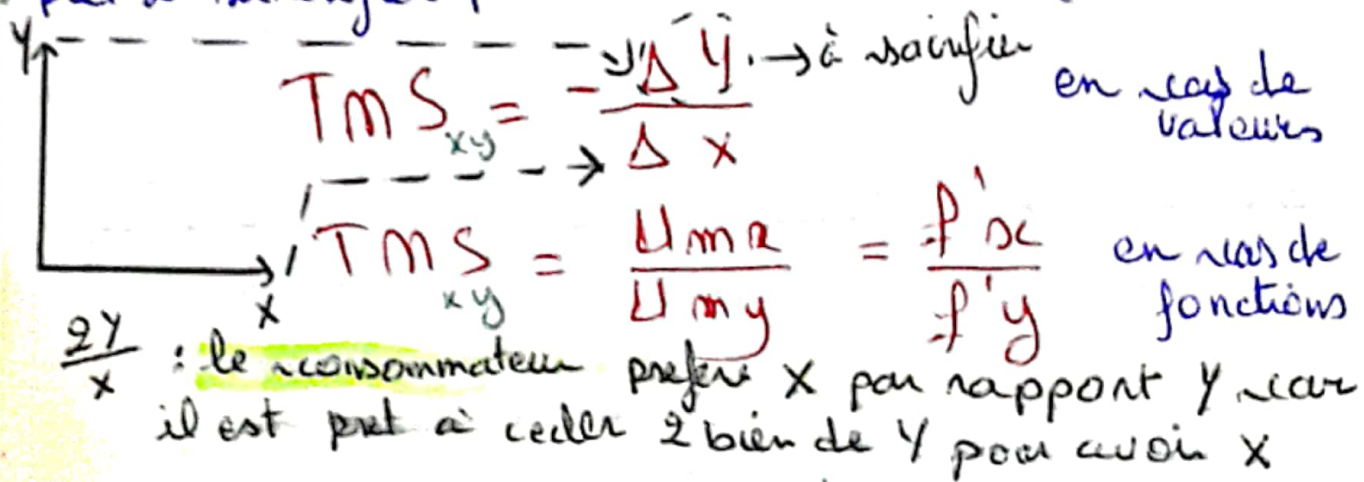 Y
TmS xy = - ΔY → à sacrifier
Δx
en cas de
valeurs
TMS xy = Umx / Umy = f'x / f'y
en cas de
fonctions
X
2Y/x : le consommateur prefere X par rapport Y car
il est pret a ceder 2 bien de Y pour avoir X